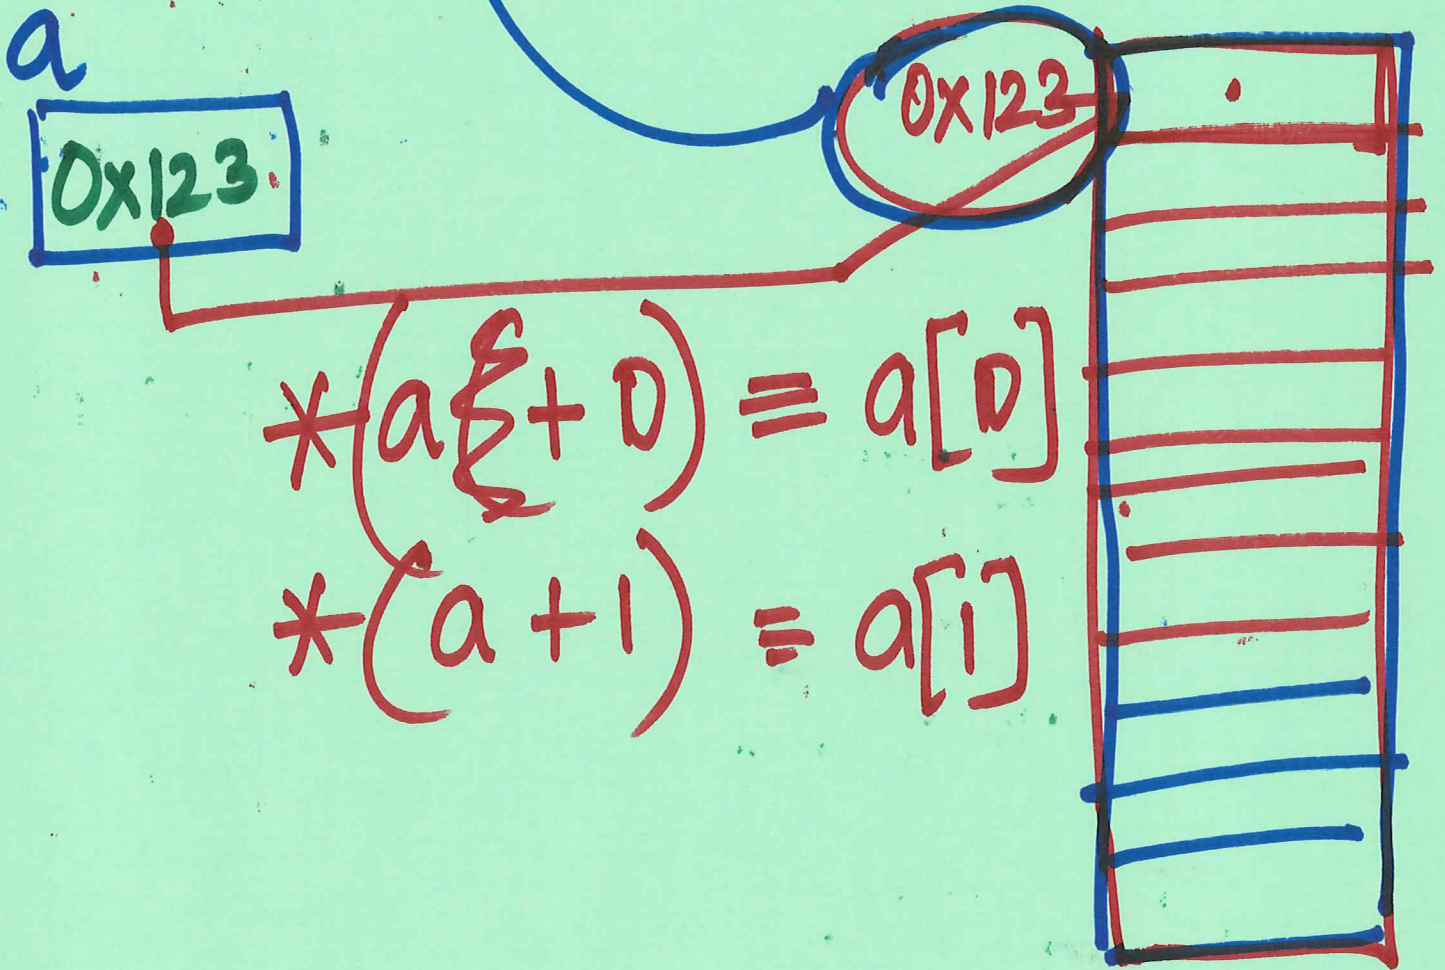 a
0x123
0x123
*(a{+0) ≡ a[0]
*(a+1) ≡ a[1]